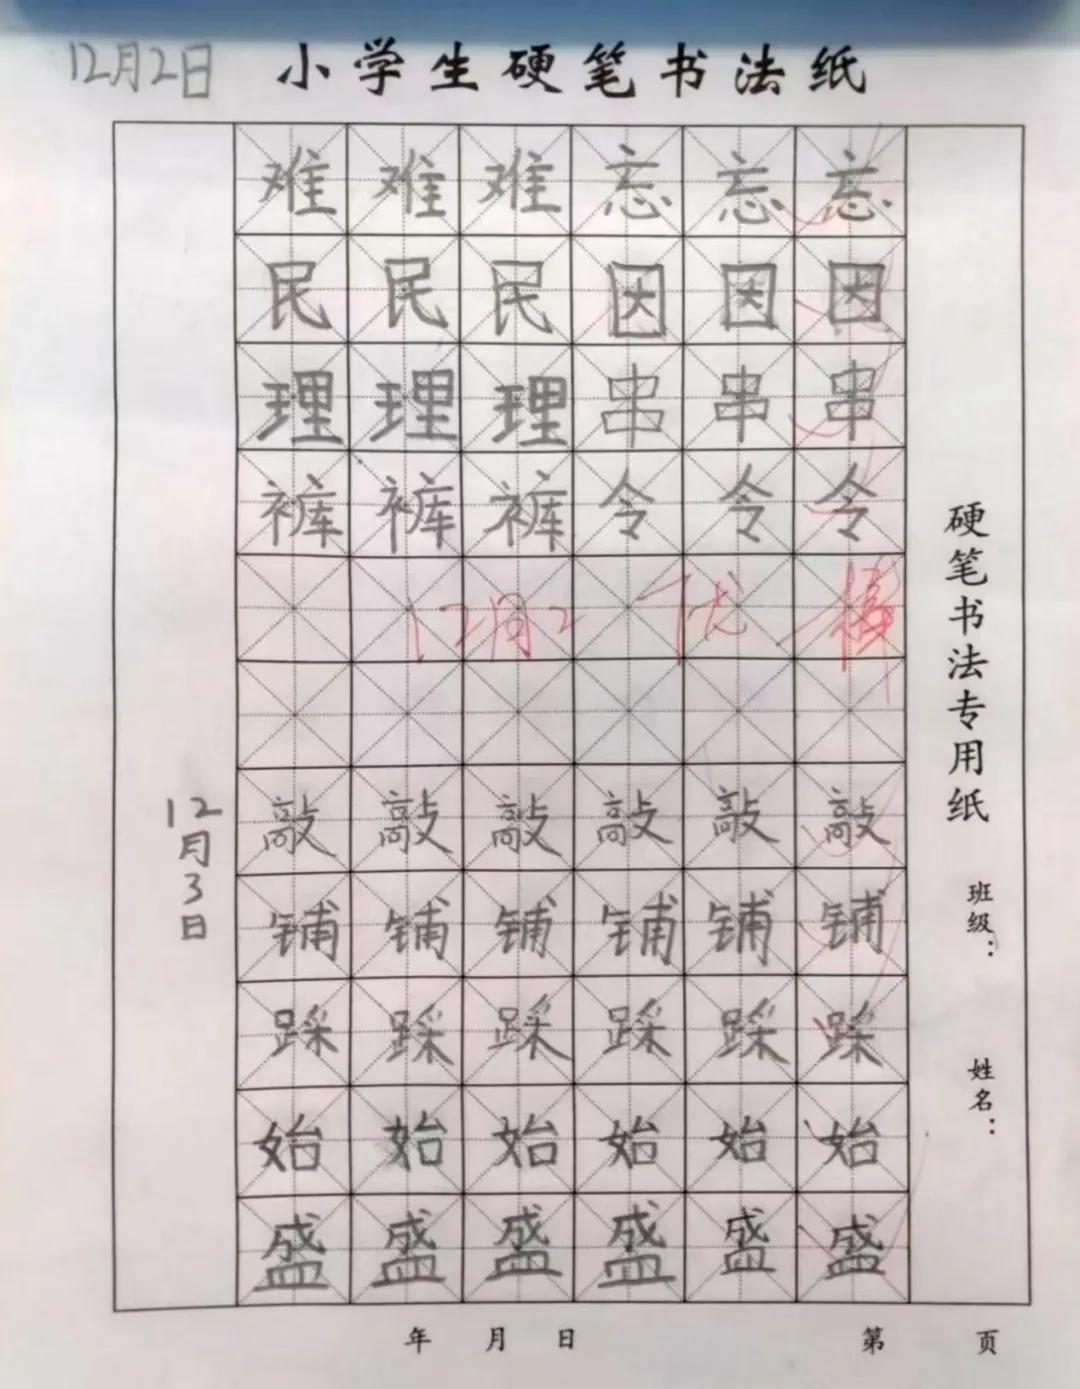 12月2日 小学生硬笔书法纸
难难难忘忘忘
民民民因因因
理理理串串串
裤裤裤令令令
12月2 优
12月3日
敲敲敲敲敲敲
铺铺铺铺铺铺
踩踩踩踩踩踩
始始始始始始
盛盛盛盛盛盛
硬笔书法专用纸
班级：
姓名：
年 月 日 第 页